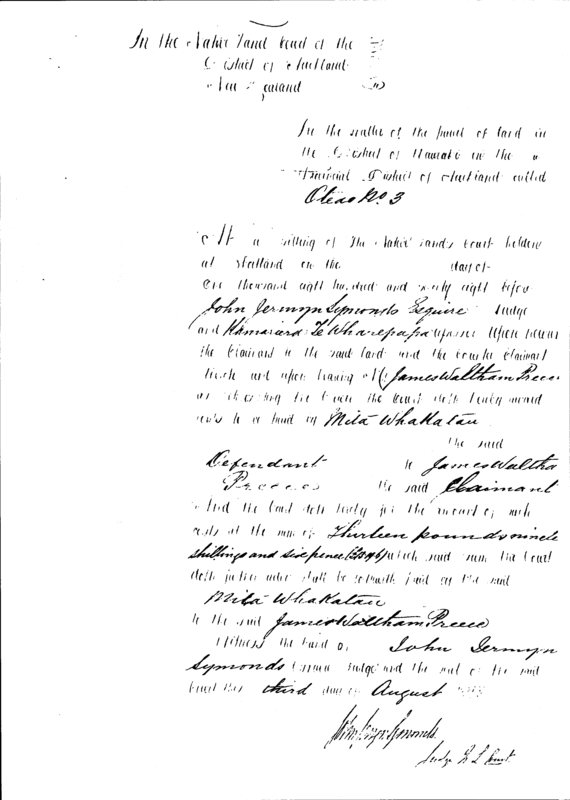 In the Native Land Court of the
District of Auckland
New Zealand
In the matter of the piece of land in
the District of Hauraki in the
Provincial District of Auckland called
No. 3
At a sitting of the Native Lands Court holden
at Shortland on the day of
One thousand eight hundred and seventy eight before
John Jermyn Symonds Esquire Judge
and Te Wharepapa Upon
the Claimant to the said land and the Counter Claimant
and upon hearing Mr James Waltham Preece
the Court doth hereby award
costs to be paid by Mita Whakatau
the said
Defendant to James Waltha
Preece the said Claimant
And the Court doth hereby fix the amount of such
costs at the sum of Thirteen pounds nine
shillings and sixpence which said sum the Court
doth further order shall be forthwith paid by the said
Mita Whakatau
to the said James Waltham Preece
Witness the hand of John Jermyn
Symonds Esquire Judge and the seal of the said
Court this third day of August
Judge N L Court